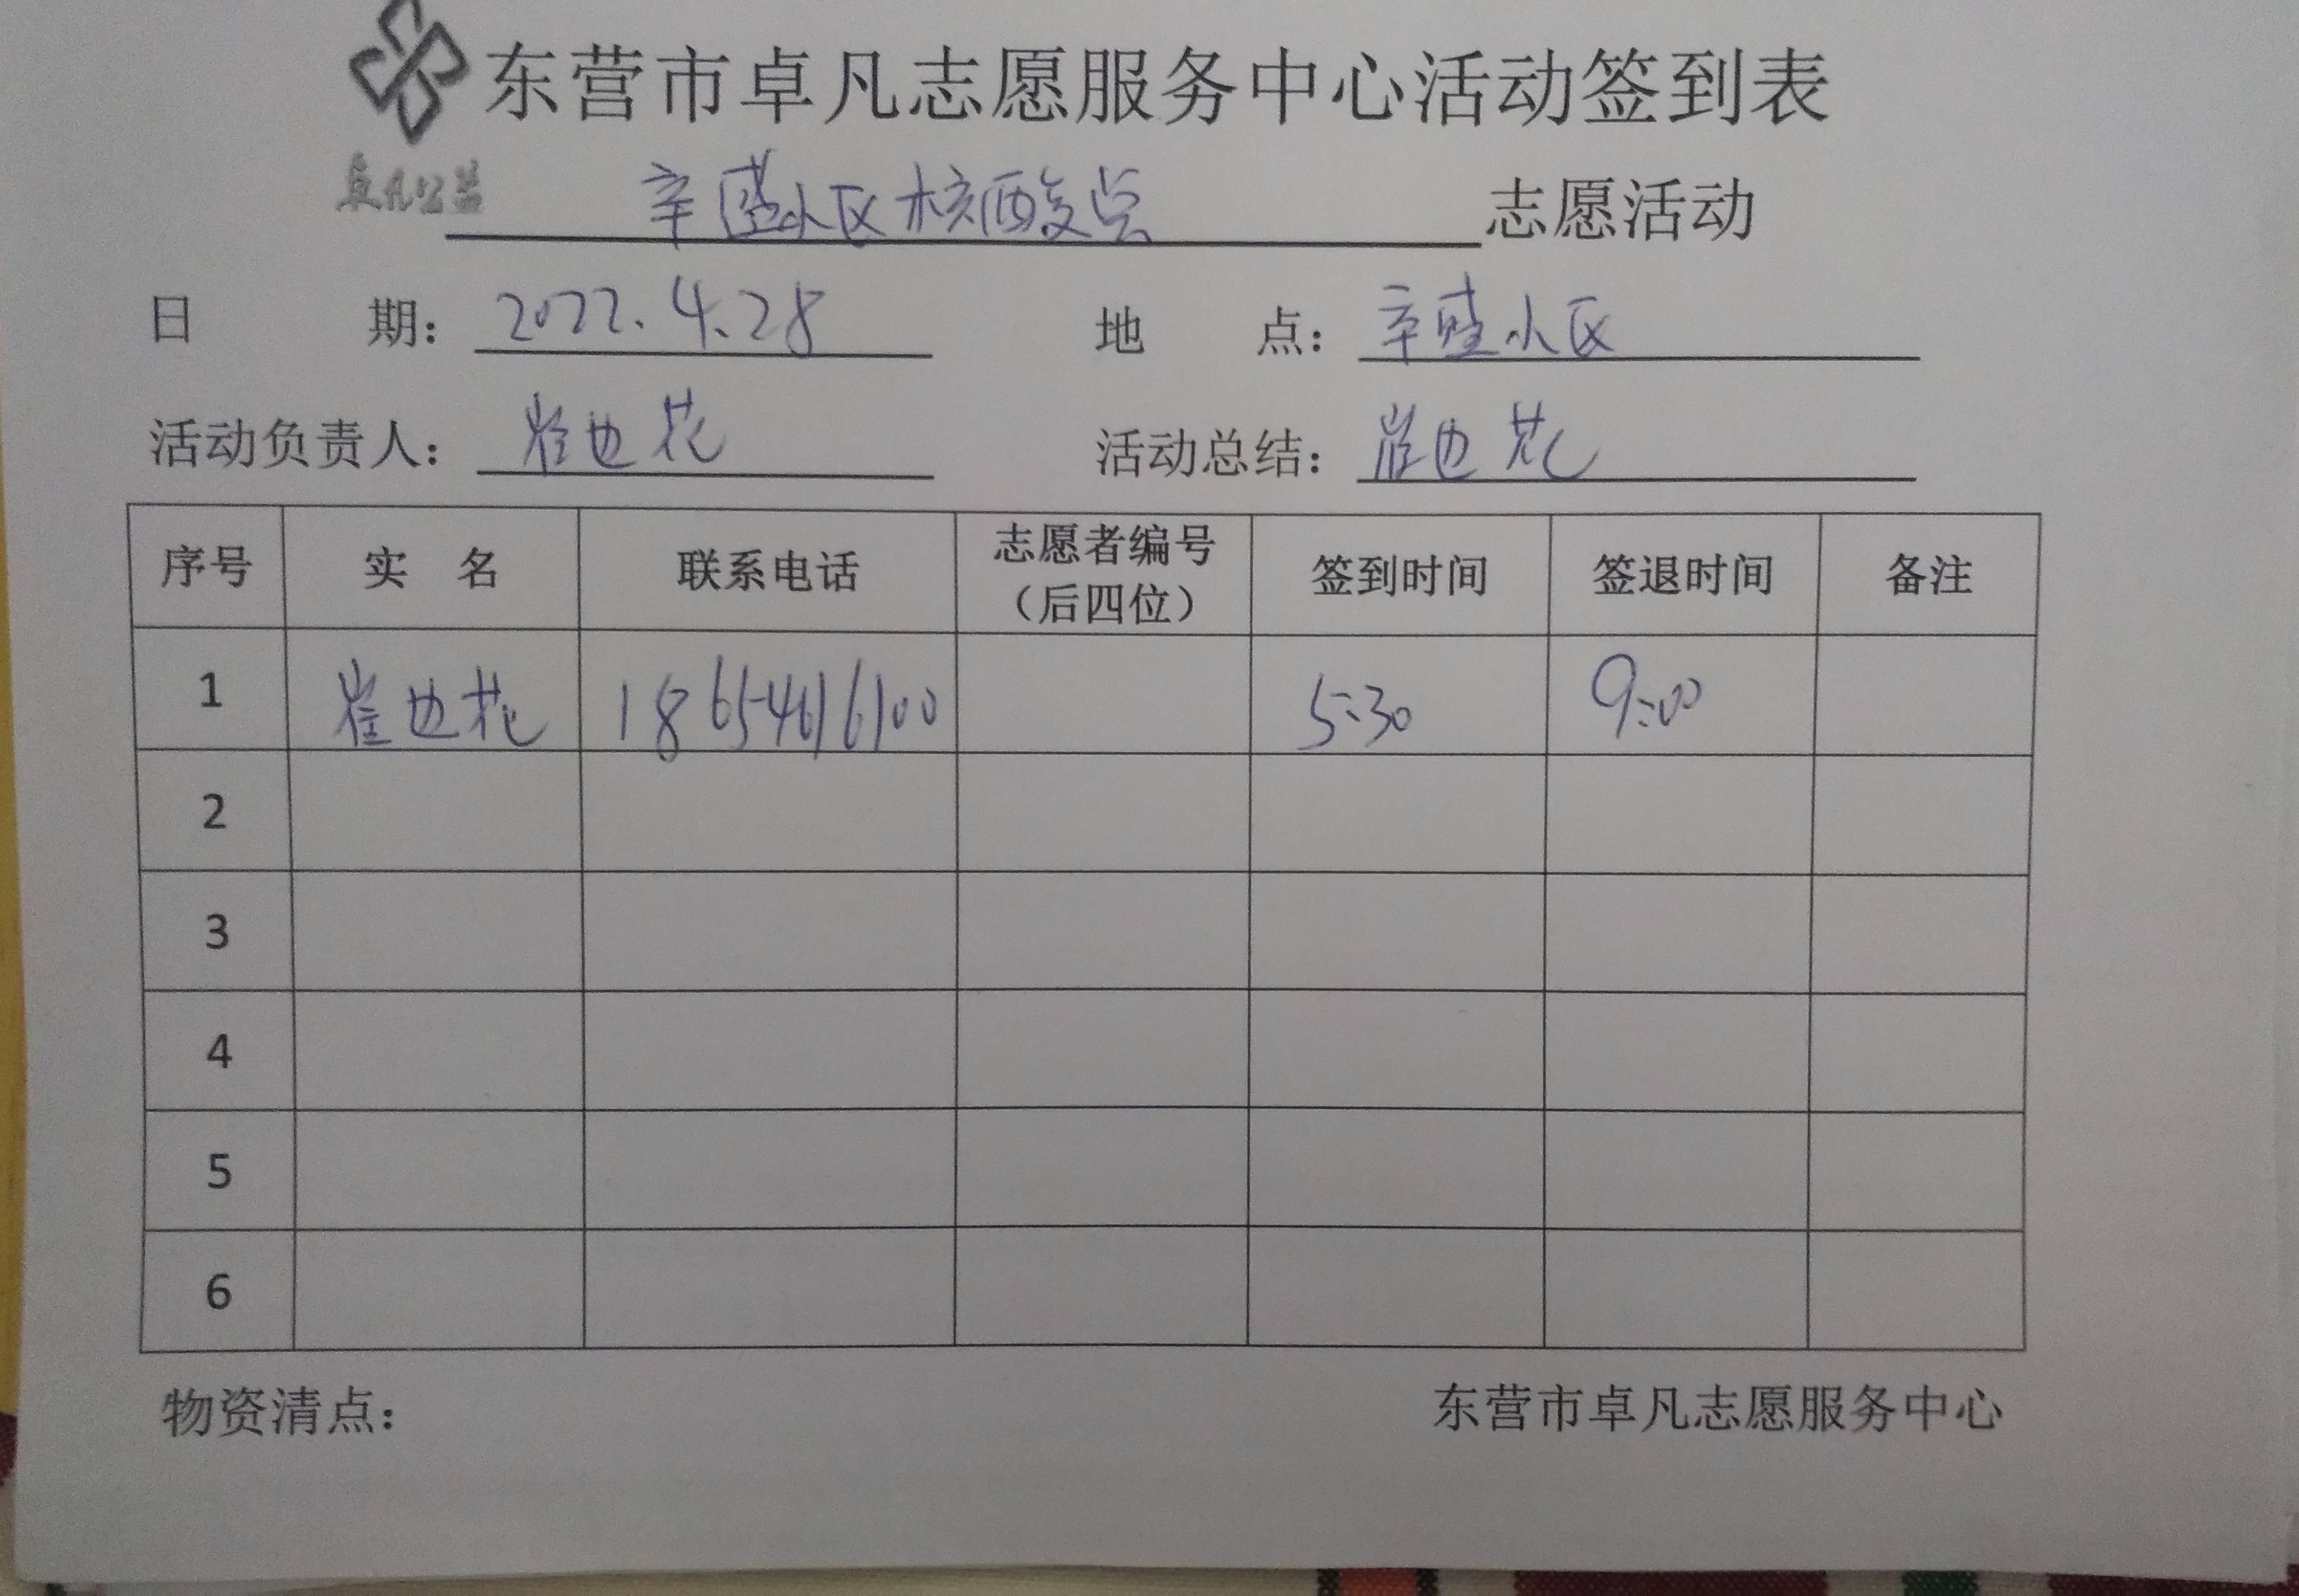 东营市卓凡志愿服务中心活动签到表
卓凡公益
辛盛小区核酸点 志愿活动
日 期: 2022.4.28 地 点: 辛盛小区
活动负责人: 崔也花 活动总结: 崔也花
序号 实 名 联系电话 志愿者编号（后四位） 签到时间 签退时间 备注
1 崔也花 18654616100 5:30 9:00
2
3
4
5
6
物资清点: 东营市卓凡志愿服务中心